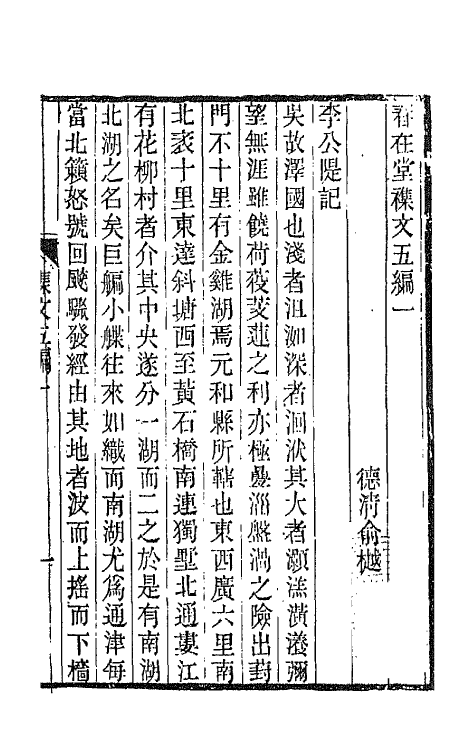 春在堂襍文五編一
德清俞樾
李公隄記
吳故澤國也淺者沮洳深者洄洑其大者灝溔潢瀁彌
望無涯雖饒荷芰菱蓮之利亦極㬥淄盤渦之險出葑
門不十里有金雞湖焉元和縣所轄也東西廣六里南
北袤十里東達斜塘西至黃石橋南連獨墅北通婁江
有花柳村者介其中央遂分一湖而二之於是有南湖
北湖之名矣巨艑小艓往來如織而南湖尤爲通津每
當北籟怒號回颷驟發經由其地者波而上搖而下檣
襍文五編一
一